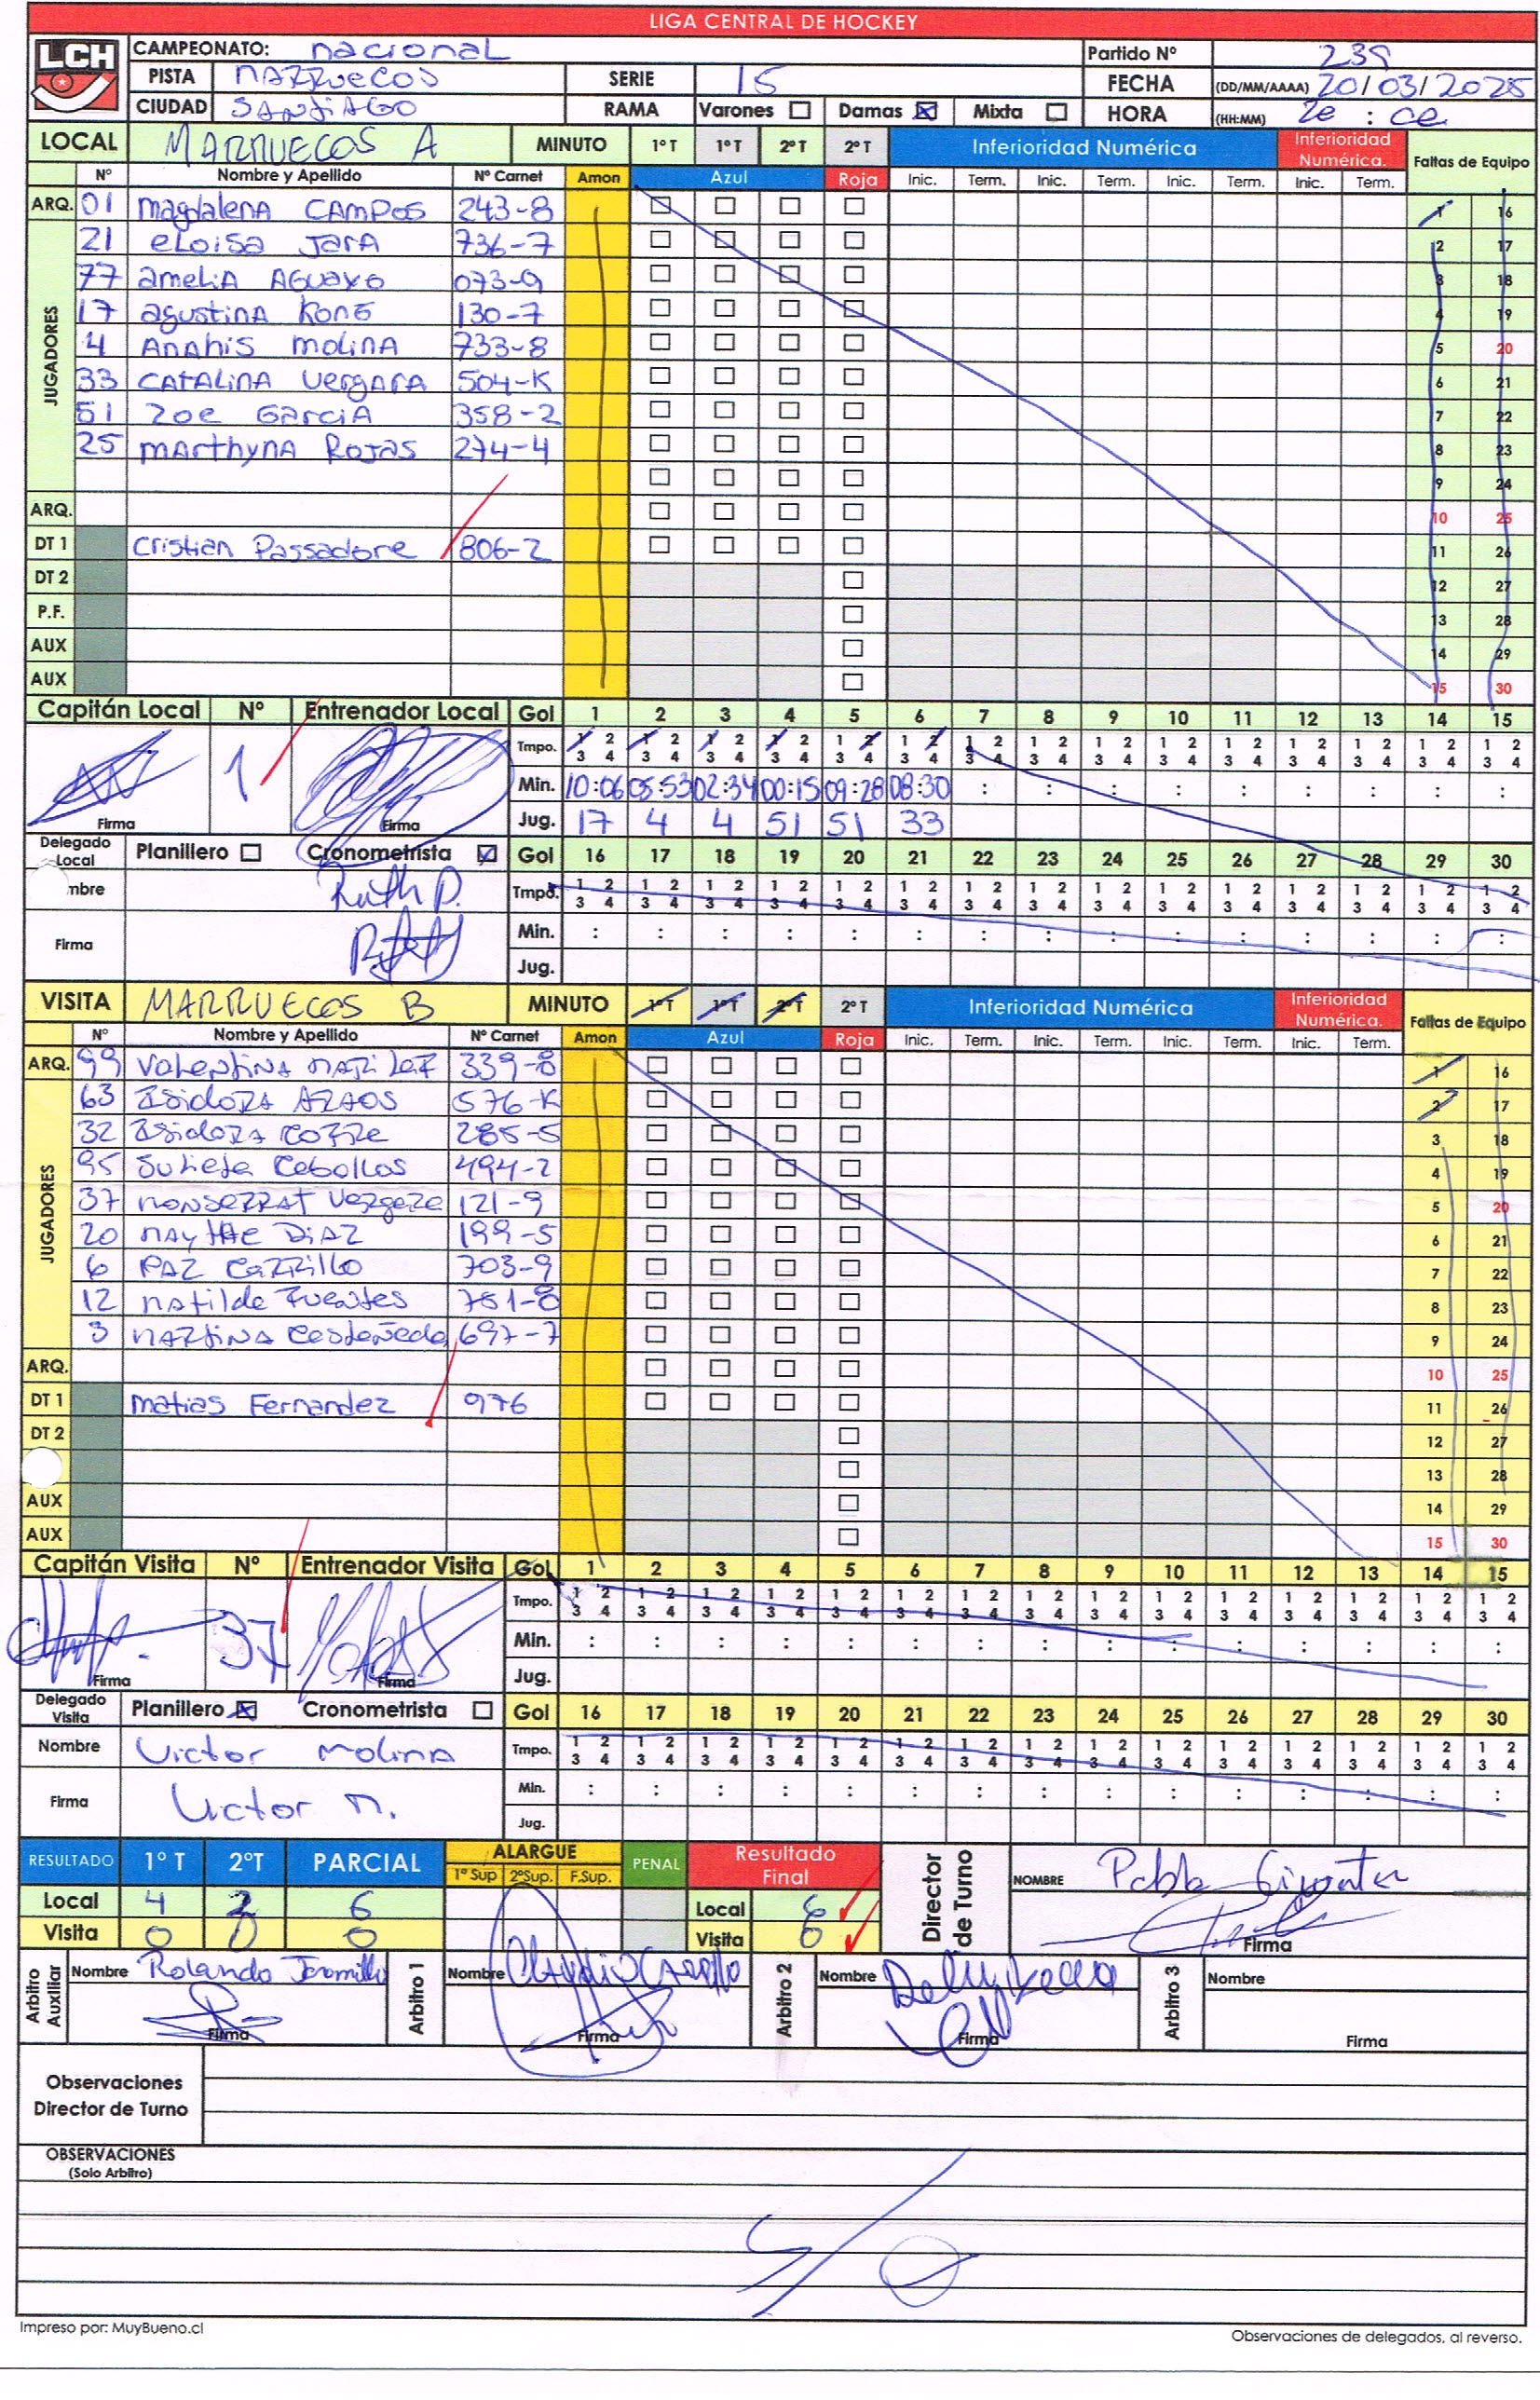 LIGA CENTRAL DE HOCKEY
LCH
CAMPEONATO: nacional Partido Nº 239
PISTA MARRUECOS SERIE 15 FECHA (DD/MM/AAAA) 20/03/2025
CIUDAD SANTIAGO RAMA Varones ☐ Damas ☒ Mixta ☐ HORA (HH:MM) :
LOCAL MARRUECOS A MINUTO 1º T 1º T 2º T 2º T Inferioridad Numérica Inferioridad Numérica. Faltas de Equipo
Nº Nombre y Apellido Nº Carnet Amon Azul Roja Inic. Term. Inic. Term. Inic. Term. Inic. Term.
ARQ. 01 magdalena CAMPOS 243-8 ☐ ☐ ☐ ☐ 1 16
JUGADORES
21 eLoisa JarA 736-7 ☐ ☐ ☐ ☐ 2 17
77 ameliA AGUAYO 073-9 ☐ ☐ ☐ ☐ 3 18
17 agustinA Kong 130-7 ☐ ☐ ☐ ☐ 4 19
4 ANAhis molinA 733-8 ☐ ☐ ☐ ☐ 5 20
33 CATALINA Vergara 504-K ☐ ☐ ☐ ☐ 6 21
51 Zoe GarciA 358-2 ☐ ☐ ☐ ☐ 7 22
25 mArthynA Rojas 274-4 ☐ ☐ ☐ ☐ 8 23
☐ ☐ ☐ ☐ 9 24
ARQ. ☐ ☐ ☐ ☐ 10 25
DT 1 Cristian Passadore 806-2 ☐ ☐ ☐ ☐ 11 26
DT 2 ☐ 12 27
P.F. ☐ 13 28
AUX ☐ 14 29
AUX ☐ 15 30
Capitán Local Nº Entrenador Local Gol 1 2 3 4 5 6 7 8 9 10 11 12 13 14 15
Tmpo. 1 2 1 2 1 2 1 2 1 2 1 2 1 2 1 2 1 2 1 2 1 2 1 2 1 2 1 2 1 2
3 4 3 4 3 4 3 4 3 4 3 4 3 4 3 4 3 4 3 4 3 4 3 4 3 4 3 4 3 4
1 Min. 10:06 05:53 02:34 00:15 09:28 08:30 : : : : : : : : :
Firma Firma Jug. 17 4 4 51 51 33
Delegado Local Planillero ☐ Cronometrista ☑ Gol 16 17 18 19 20 21 22 23 24 25 26 27 28 29 30
mbre Ruth P. Tmpo. 1 2 1 2 1 2 1 2 1 2 1 2 1 2 1 2 1 2 1 2 1 2 1 2 1 2 1 2 1 2
3 4 3 4 3 4 3 4 3 4 3 4 3 4 3 4 3 4 3 4 3 4 3 4 3 4 3 4 3 4
Firma Min. : : : : : : : : : : : : : : :
Jug.
VISITA MARRUECOS B MINUTO 1º T 1º T 2º T 2º T Inferioridad Numérica Inferioridad Numérica. Faltas de Equipo
Nº Nombre y Apellido Nº Carnet Amon Azul Roja Inic. Term. Inic. Term. Inic. Term. Inic. Term.
ARQ. 99 Valentina 339-8 ☐ ☐ ☐ ☐ 1 16
JUGADORES
63 Isidora ARAOS 576-K ☐ ☐ ☐ ☐ 2 17
32 Isidora 285-5 ☐ ☐ ☐ ☐ 3 18
95 Julieta Ceballos 494-2 ☐ ☐ ☐ ☐ 4 19
37 MONSERRAT Vergara 121-9 ☐ ☐ ☐ ☐ 5 20
20 MAYTHE DIAZ 199-5 ☐ ☐ ☐ ☐ 6 21
6 PAZ Carrillo 703-9 ☐ ☐ ☐ ☐ 7 22
12 Matilde Fuentes 751-8 ☐ ☐ ☐ ☐ 8 23
3 MARTINA Castañeda 697-7 ☐ ☐ ☐ ☐ 9 24
ARQ. ☐ ☐ ☐ ☐ 10 25
DT 1 matias Fernandez 976 ☐ ☐ ☐ ☐ 11 26
DT 2 ☐ 12 27
☐ 13 28
AUX ☐ 14 29
AUX ☐ 15 30
Capitán Visita Nº Entrenador Visita Gol 1 2 3 4 5 6 7 8 9 10 11 12 13 14 15
Tmpo. 1 2 1 2 1 2 1 2 1 2 1 2 1 2 1 2 1 2 1 2 1 2 1 2 1 2 1 2 1 2
3 4 3 4 3 4 3 4 3 4 3 4 3 4 3 4 3 4 3 4 3 4 3 4 3 4 3 4 3 4
37 Min. : : : : : : : : : : : : : : :
Firma Firma Jug.
Delegado Visita Planillero ☒ Cronometrista ☐ Gol 16 17 18 19 20 21 22 23 24 25 26 27 28 29 30
Nombre Victor Molina Tmpo. 1 2 1 2 1 2 1 2 1 2 1 2 1 2 1 2 1 2 1 2 1 2 1 2 1 2 1 2 1 2
3 4 3 4 3 4 3 4 3 4 3 4 3 4 3 4 3 4 3 4 3 4 3 4 3 4 3 4 3 4
Firma Victor M. Min. : : : : : : : : : : : : : : :
Jug.
RESULTADO 1º T 2ºT PARCIAL ALARGUE 1º Sup 2ºSup. F.Sup. PENAL Resultado Final Director de Turno NOMBRE Pablo
Local 4 2 6 Local 6
Visita 0 0 0 Visita 0 Firma
Arbitro Auxiliar Nombre Rolando Jaramillo Arbitro 1 Nombre Claudio Carrillo Arbitro 2 Nombre Arbitro 3 Nombre
Firma Firma Firma Firma
Observaciones
Director de Turno
OBSERVACIONES
(Solo Arbitro)
S/O
Impreso por: MuyBueno.cl
Observaciones de delegados, al reverso.